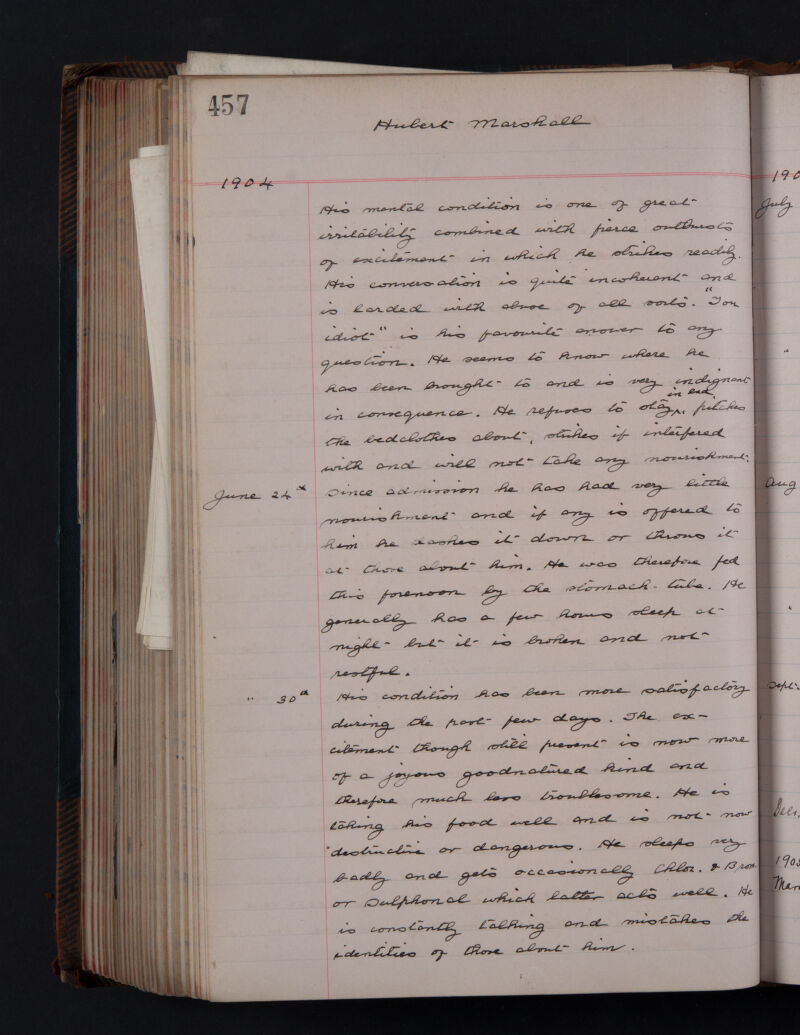 457
Hubert Marshall
1904
His mental condition is one of great
irritability combined with fierce outbursts
of excitement in which he strikes readily.
His conversation is quite incoherent and
is larded with abuse of all sorts. "You
idiot" is his favourite answer to any
question. He seems to know where he
has been brought to and is very indignant
in consequence. He refuses to stay in bed, pitches
the bedclothes about, strikes if interfered
with and will not take any nourishment.
June 24th Since admission he has had very little
nourishment and if any is offered to
him he dashes it down or throws it
at those about him. He was therefore fed
this forenoon by the stomach-tube. He
generally has a few hours sleep at
night but it is broken and not
restful.
" 30th His condition has been more satisfactory
during the past few days. The ex-
citement though still present is now more
of a joyous goodnatured kind and
therefore much less troublesome. He is
taking his food well and is not now
destructive or dangerous. He sleeps very
badly and gets occasionally Chlor. & Brom
or Sulphonal which latter acts well. He
is constantly talking and mistakes the
identities of those about him.
190
July
"
Aug
"
Sept.
Dec.
190
Mar